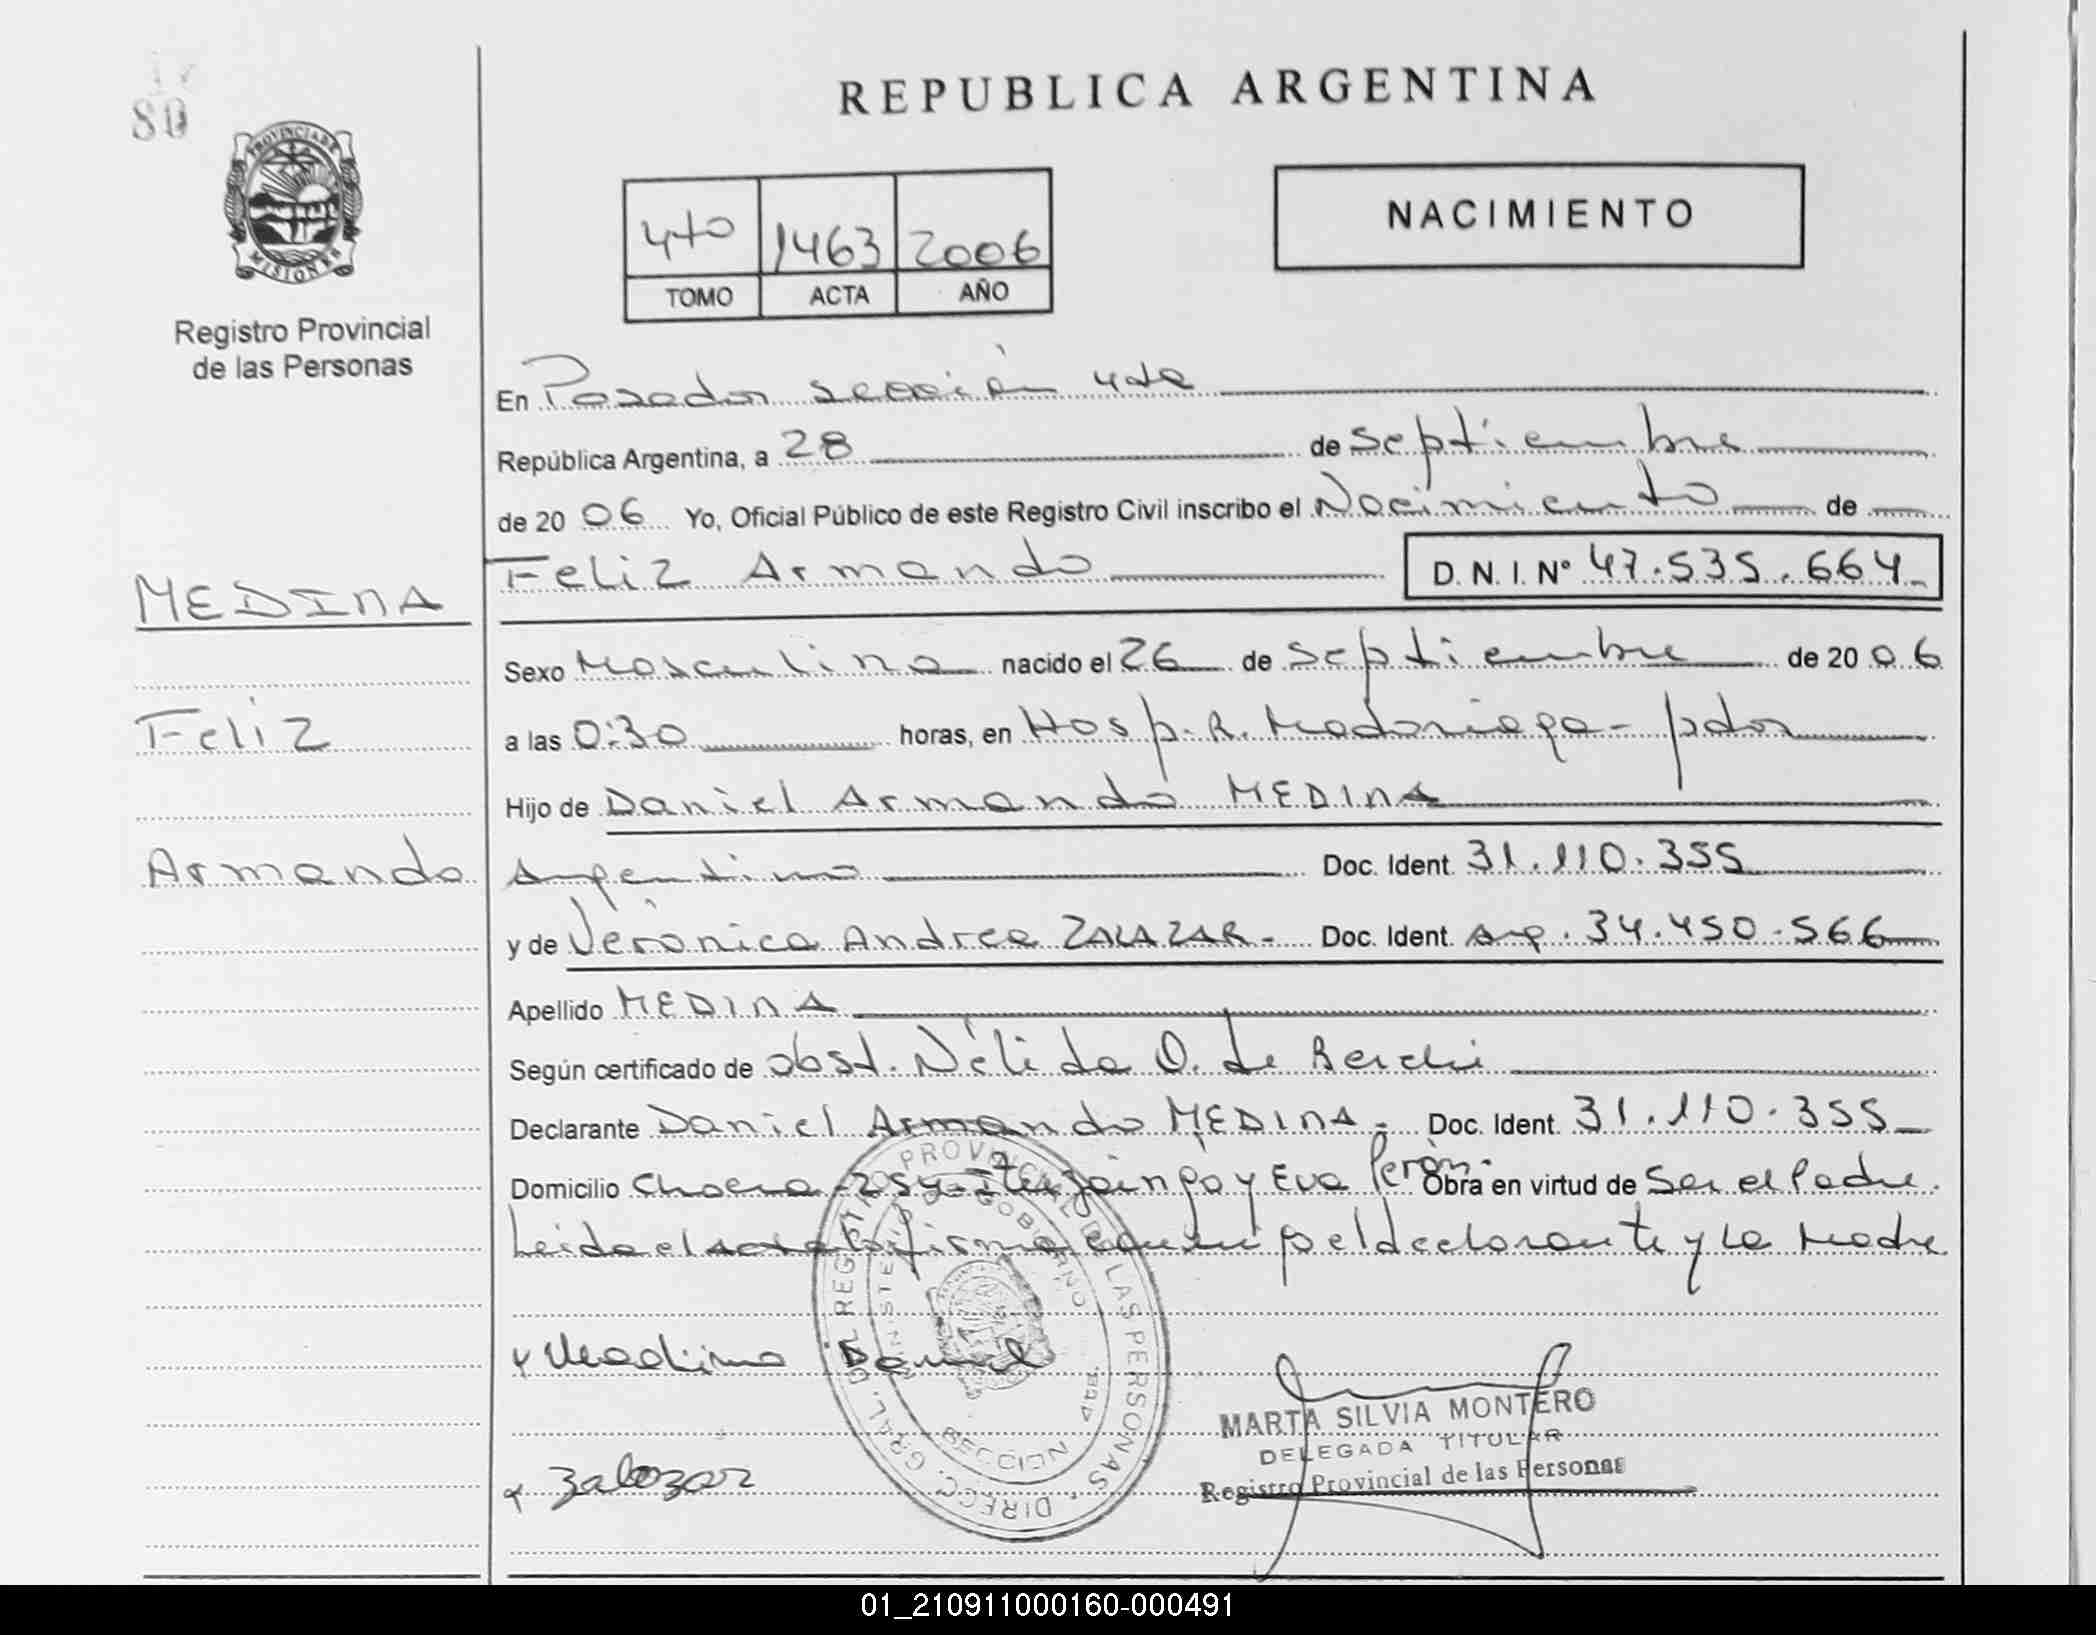 80
REPUBLICA ARGENTINA
PROVINCIA DE
MISIONES
Registro Provincial
de las Personas
4to 1463 2006
TOMO ACTA AÑO
NACIMIENTO
En Posadas sección 4ta
República Argentina, a 28 de Septiembre
de 20 06 Yo, Oficial Público de este Registro Civil inscribo el Nacimiento de
Feliz Armando D. N. I. N° 47.535.664
MEDINA
Sexo Masculino nacido el 26 de Septiembre de 20 06
Feliz
a las 0:30 horas, en Hosp. R. Madariaga - pdas
Hijo de Daniel Armando MEDINA
Armando
Argentino Doc. Ident. 31.110.355
y de Verónica Andrea ZALAZAR - Doc. Ident. Arg. 34.450.566
Apellido MEDINA
Según certificado de obst. Nélida O. de
Declarante Daniel Armando MEDINA - Doc. Ident. 31.110.355
Domicilio Chacra 254 - y Eva Perón - Obra en virtud de Ser el Padre.
Leida el acta firman el declarante y la Madre
x Medina Daniel
x Zalazar
DIRECC. GRAL. DEL REGISTRO PROVINCIAL DE LAS PERSONAS
MINISTERIO DE GOBIERNO
SECCION 4ta
MARTA SILVIA MONTERO
DELEGADA TITULAR
Registro Provincial de las Personas
01_210911000160-000491